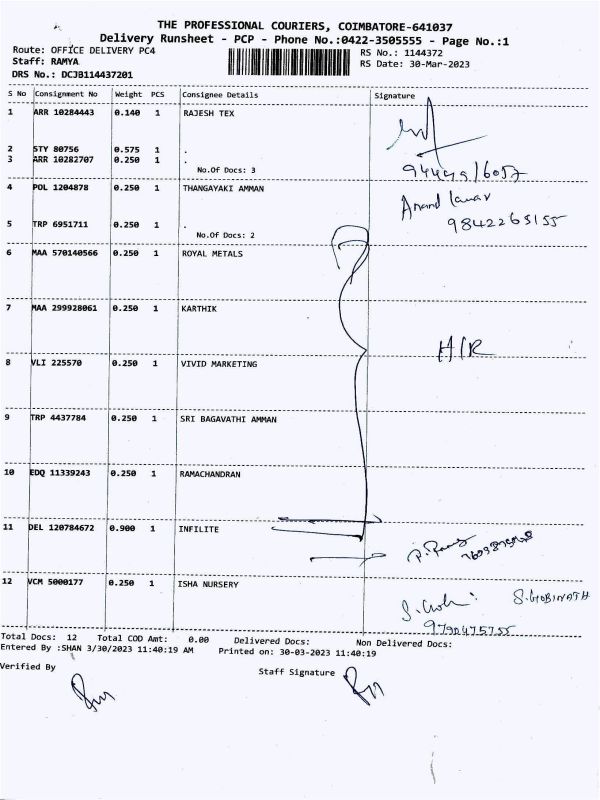 THE PROFESSIONAL COURIERS, COIMBATORE-641037
Delivery Runsheet - PCP - Phone No.:0422-3505555 - Page No.:1
Route: OFFICE DELIVERY PC4
RS No.: 1144372
Staff: RAMYA
RS Date: 30-Mar-2023
DRS No.: DCJB114437201
S No Consignment No Weight PCS Consignee Details Signature
1 ARR 10284443 0.140 1 RAJESH TEX
2 STY 80756 0.575 1 .
3 ARR 10282707 0.250 1 .
No.Of Docs: 3
4 POL 1204878 0.250 1 THANGAYAKI AMMAN
Anand
5 TRP 6951711 0.250 1 .
9842265155
No.Of Docs: 2
6 MAA 570140566 0.250 1 ROYAL METALS
7 MAA 299928061 0.250 1 KARTHIK
H/R
8 VLI 225570 0.250 1 VIVID MARKETING
9 TRP 4437784 0.250 1 SRI BAGAVATHI AMMAN
10 EDQ 11339243 0.250 1 RAMACHANDRAN
11 DEL 120784672 0.900 1 INFILITE
12 VCM 5000177 0.250 1 ISHA NURSERY
S.GOBINATH
9790475755
Total Docs: 12 Total COD Amt: 0.00 Delivered Docs: Non Delivered Docs:
Entered By :SHAN 3/30/2023 11:40:19 AM Printed on: 30-03-2023 11:40:19
Verified By Staff Signature